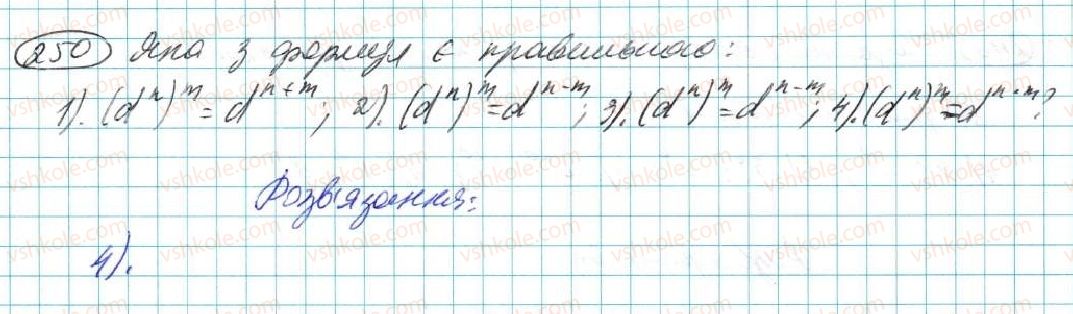 250 Яка з формул є правильною:
1). (d^n)^m = d^{n+m}; 2). (d^n)^m = d^{n-m}; 3). (d^n)^m = d^{n-m}; 4). (d^n)^m = d^{n·m}?
Розв'язання:
4).